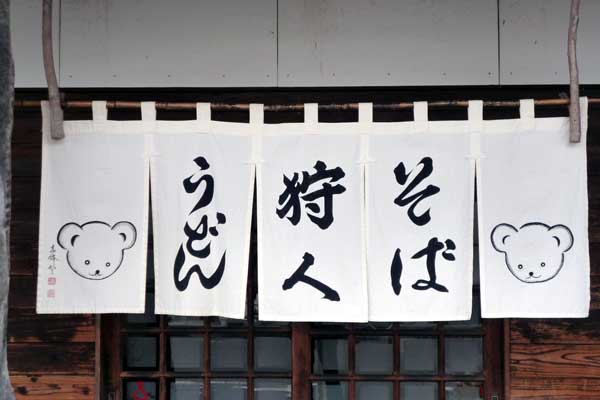 そば
狩人
うどん